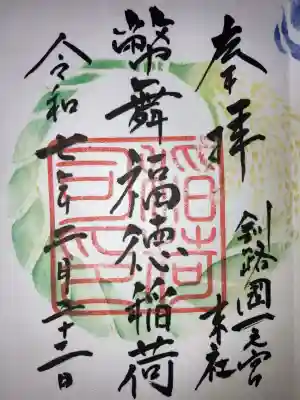 奉拝
釧路國一之宮
末社
幣舞福徳稲荷
稲荷
令和七年二月二十二日